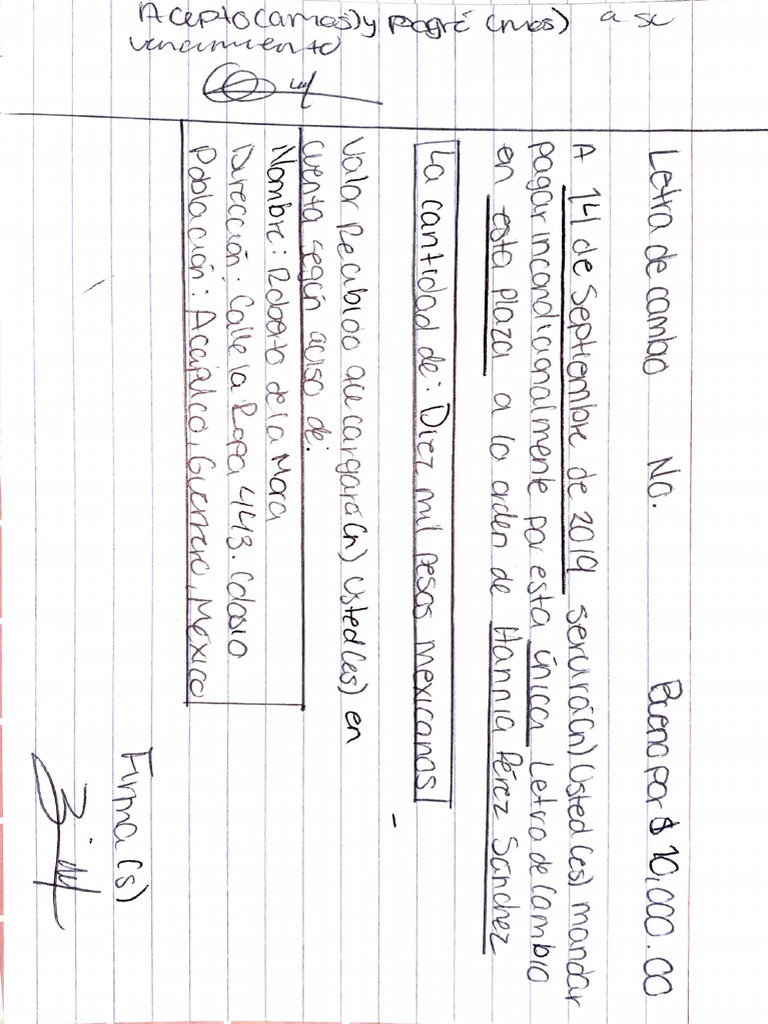 Acepto(amos) y pagré (mos) a su
vencimiento
Letra de cambio No. Bueno por $ 10,000.00
A 14 de Septiembre de 2019 servirá(n) Usted(es) mandar
pagar incondicionalmente por esta única Letra de Cambio
en esta plaza a la orden de Hannia Pérez Sánchez
La cantidad de: Diez mil pesos mexicanos
Valor Recibido que cargará(n) Usted(es) en
cuenta según aviso de:
Nombre: Roberto de la Mora
Dirección: Calle la Ropa 443. Colosio
Población: Acapulco, Guerrero, México
Firma(s)